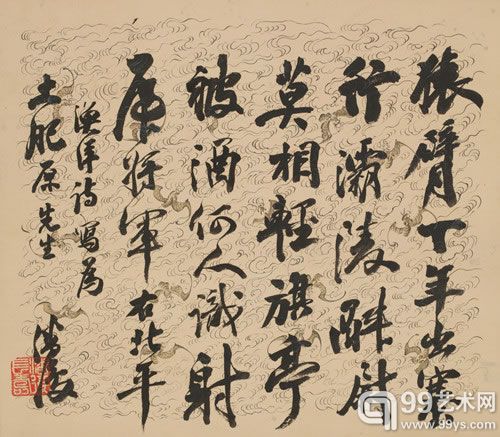 猿臂丁年出塞
行灞陵醉尉
莫相輕旗亭
被酒何人識射
虎將軍右北平
漁洋詩寫為
土肥原先生
99艺术网
www.99ys.com